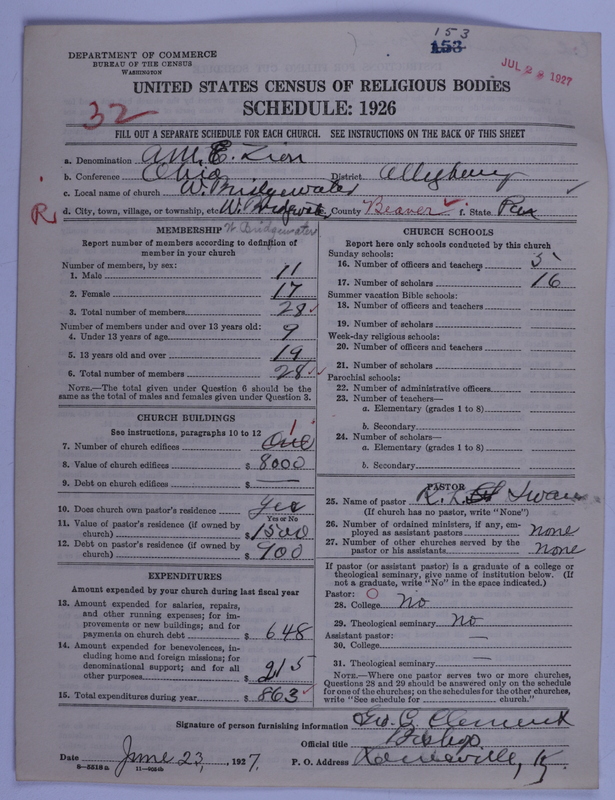 153
153
JUL 23 1927
DEPARTMENT OF COMMERCE
BUREAU OF THE CENSUS
WASHINGTON
UNITED STATES CENSUS OF RELIGIOUS BODIES
SCHEDULE: 1926
32
FILL OUT A SEPARATE SCHEDULE FOR EACH CHURCH. SEE INSTRUCTIONS ON THE BACK OF THIS SHEET
a. Denomination A.M.E. Zion
b. Conference Ohio District Allegheny
c. Local name of church W. Bridgewater
R d. City, town, village, or township, etc W. Bridgewater County Beaver f. State Pa
W Bridgewater
MEMBERSHIP
Report number of members according to definition of
member in your church
Number of members, by sex:
1. Male 11
2. Female 17
3. Total number of members 28
Number of members under and over 13 years old:
4. Under 13 years of age 9
5. 13 years old and over 19
6. Total number of members 28
NOTE.—The total given under Question 6 should be the
same as the total of males and females given under Question 3.
CHURCH BUILDINGS
See instructions, paragraphs 10 to 12
7. Number of church edifices One 1
8. Value of church edifices $ 8000
9. Debt on church edifices $ —
10. Does church own pastor's residence? Yes
Yes or No
11. Value of pastor's residence (if owned by
church) $ 1500
12. Debt on pastor's residence (if owned by
church) $ 900
EXPENDITURES
Amount expended by your church during last fiscal year
13. Amount expended for salaries, repairs,
and other running expenses; for im-
provements or new buildings; and for
payments on church debt $ 648
14. Amount expended for benevolences, in-
cluding home and foreign missions; for
denominational support; and for all
other purposes $ 215
15. Total expenditures during year $ 863
CHURCH SCHOOLS
Report here only schools conducted by this church
Sunday schools:
16. Number of officers and teachers 5
17. Number of scholars 16
Summer vacation Bible schools:
18. Number of officers and teachers
19. Number of scholars
Week-day religious schools:
20. Number of officers and teachers
21. Number of scholars
Parochial schools:
22. Number of administrative officers
23. Number of teachers—
a. Elementary (grades 1 to 8)
b. Secondary
24. Number of scholars—
a. Elementary (grades 1 to 8)
b. Secondary
PASTOR
25. Name of pastor R. L. Swan
(If church has no pastor, write "None")
26. Number of ordained ministers, if any, em-
ployed as assistant pastors none
27. Number of other churches served by the
pastor or his assistants none
If pastor (or assistant pastor) is a graduate of a college or
theological seminary, give name of institution below. (If
not a graduate, write "No" in the space indicated.)
Pastor:
28. College No
29. Theological seminary No
Assistant pastor:
30. College —
31. Theological seminary —
NOTE.—Where one pastor serves two or more churches,
Questions 28 and 29 should be answered only on the schedule
for one of the churches; on the schedules for the other churches,
write "See schedule for church."
Signature of person furnishing information Geo. C. Clement
Official title Bishop
Date June 23, 1927. P. O. Address Louisville, Ky
8—5518a 11—9